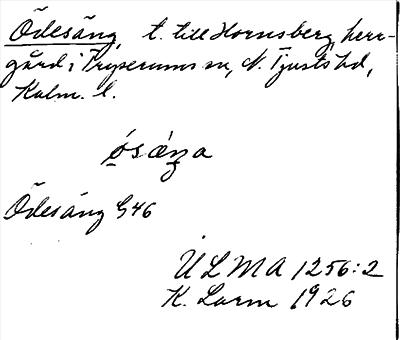 Ödesäng, t. till Hornsberg, herr-
gård i Tryserums sn, N. Tjusts hd,
Kalm. l.
ǿsǽŋa
Ödesäng G46
ULMA 1256:2
K. Larm 1926